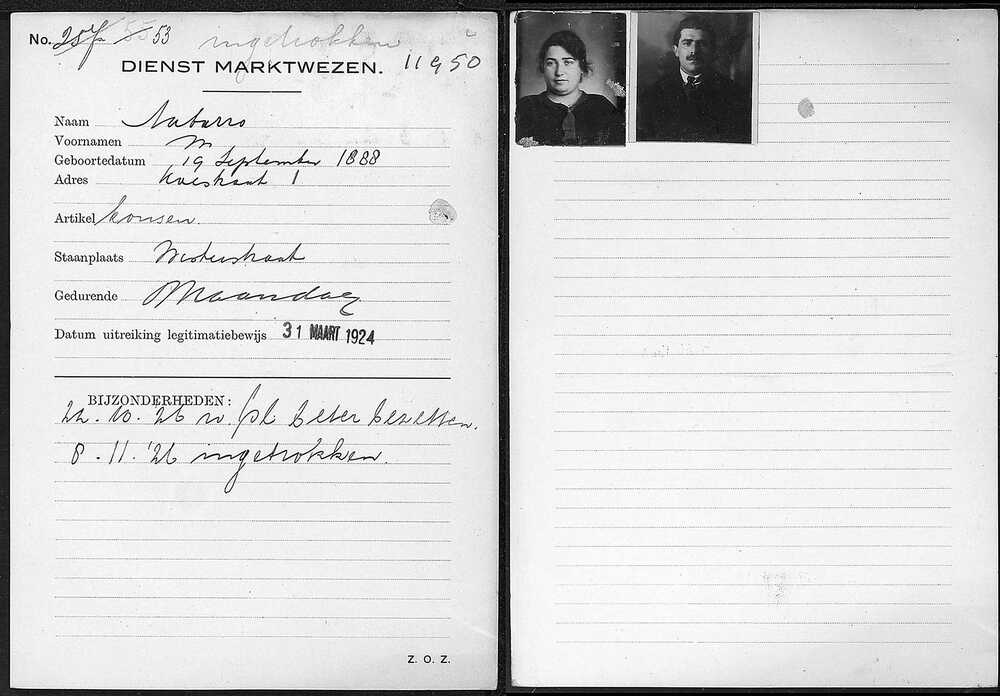 No. 257 53 ingetrokken
DIENST MARKTWEZEN. 11950
Naam Nabarro
Voornamen M
Geboortedatum 19 September 1888
Adres 1
Artikel kousen.
Staanplaats Westerstraat
Gedurende Maandag
Datum uitreiking legitimatiebewijs 31 MAART 1924
BIJZONDERHEDEN:
22.10.'26 pl beter bezetten.
8.11.'26 ingetrokken.
Z. O. Z.